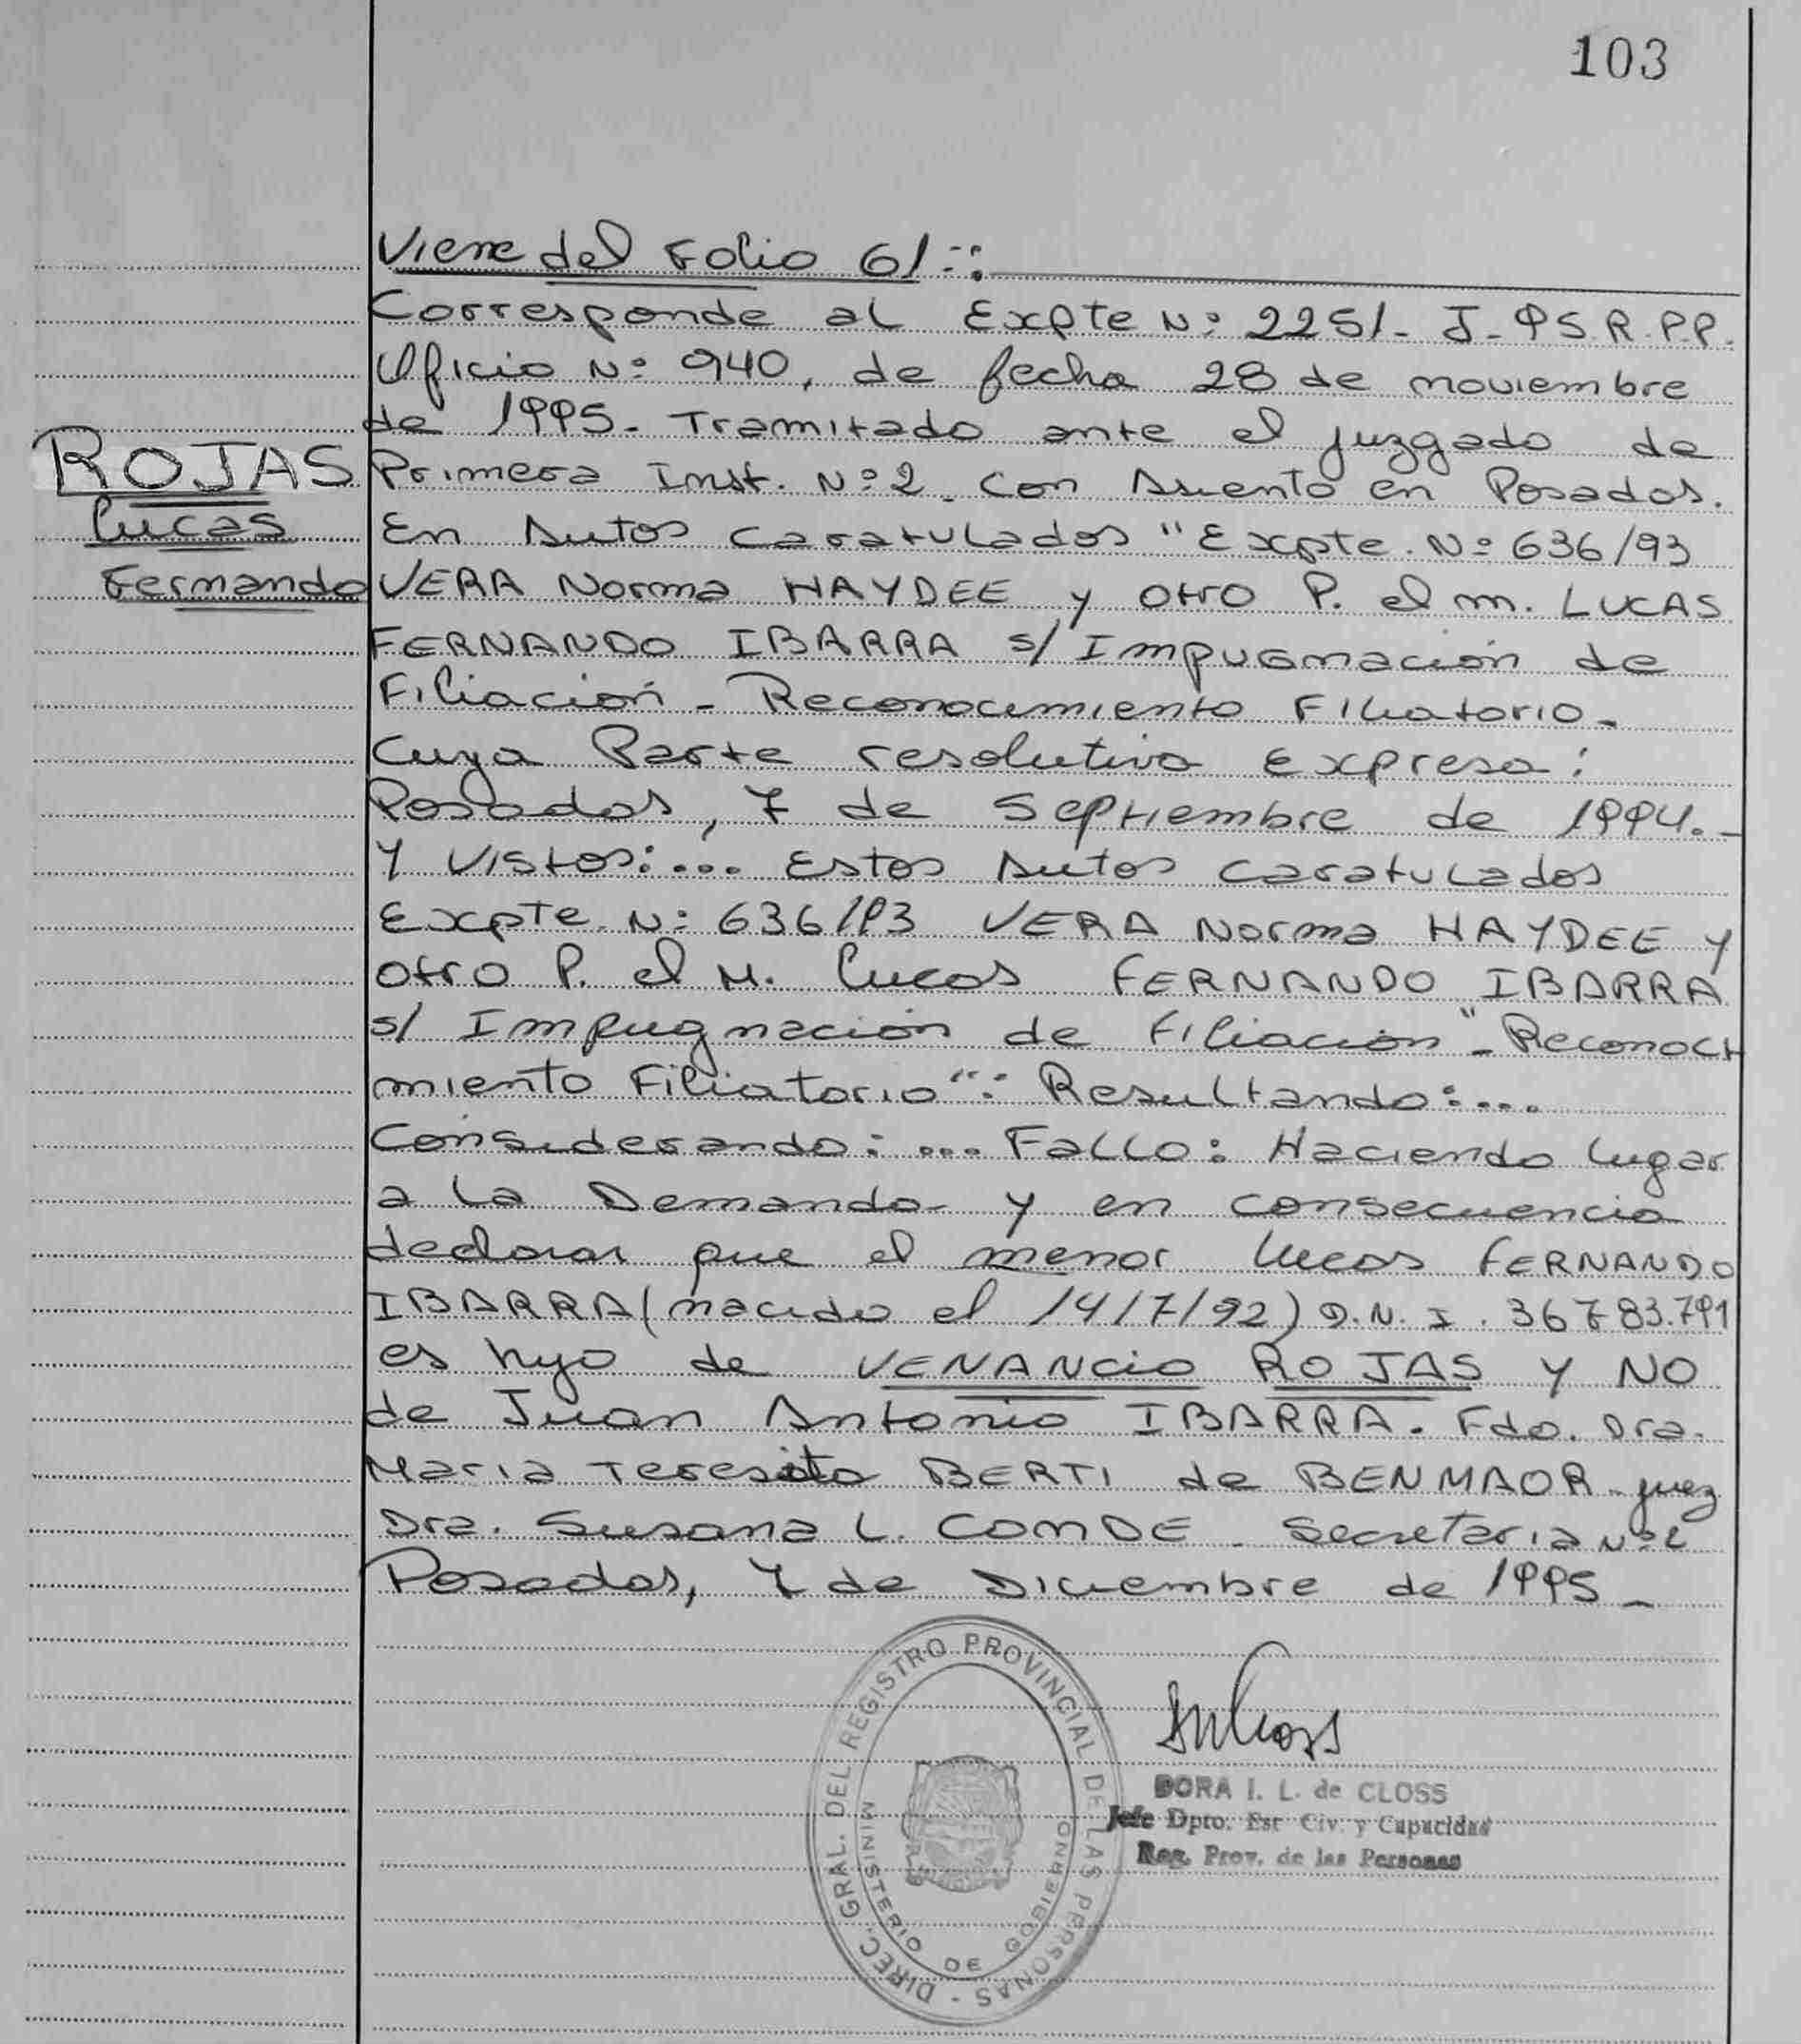 103
Viene del Folio 61-:
Corresponde al Expte Nº 2251- J-95 R.P.P.
Oficio Nº 940, de fecha 28 de noviembre
de 1995- Tramitado ante el juzgado de
ROJAS
Primera Inst. Nº2. con Asiento en Posadas.
Lucas
En Autos Caratulados "Expte. Nº 636/93
Fernando
VERA Norma HAYDEE y otro P. el m. LUCAS
FERNANDO IBARRA s/ Impugnación de
Filiación - Reconocimiento Filiatorio-
Cuya Parte resolutiva Expresa:
Posadas, 7 de Septiembre de 1994.-
Y Vistos:... Estos Autos Caratulados
Expte. Nº 636/93 VERA Norma HAYDEE y
otro P. el M. Lucas FERNANDO IBARRA
s/ Impugnación de Filiación"- Reconoci
miento Filiatorio": Resultando:...
Considerando:... Fallo: Haciendo lugar
a la Demanda y en consecuencia
declarar que el menor Lucas FERNANDO
IBARRA (nacido el 14/7/92) D.N.I. 36783.791
es hijo de VENANCIO ROJAS y NO
de Juan Antonio IBARRA. Fdo. Dra.
Maria Teresita BERTI de BENMAOR - juez
Dra. Susana L. CONDE - Secretaria Nº2
Posadas, 7 de Diciembre de 1995-
DIREC. GRAL. DEL REGISTRO PROVINCIAL DE LAS PERSONAS -
MINISTERIO DE GOBIERNO
DORA I. L. de CLOSS
Jefe Dpto. Est Civ. y Capacidad
Reg. Prov. de las Personas